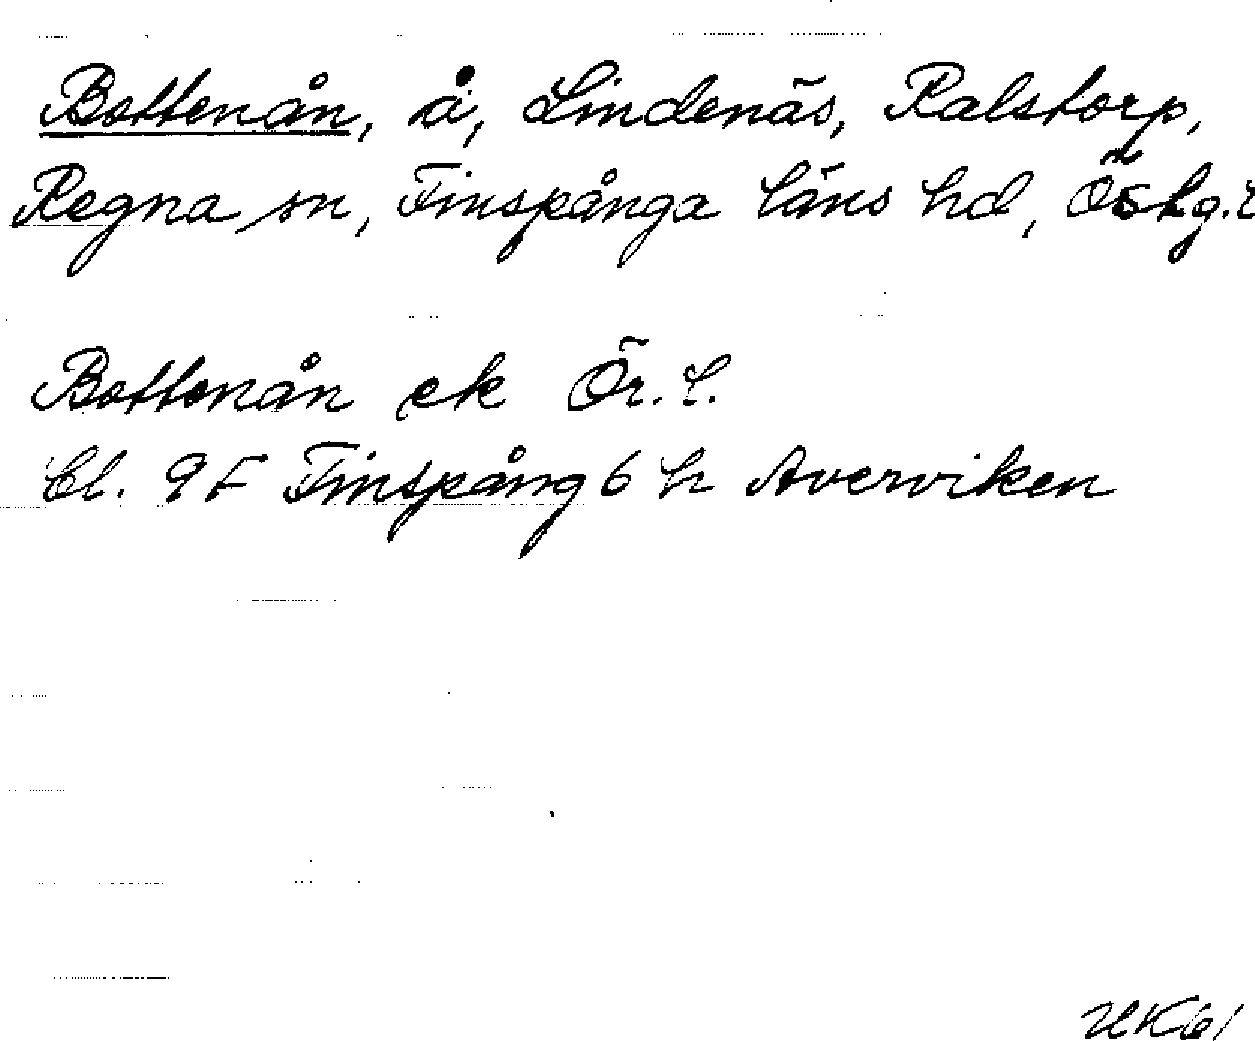 Bottenån, å, Lindenäs, Ralstorp,
Regna sn, Finspånga läns hd, Östg.l
Bottenån ek Ör. l.
Bl. 9F Finspång 6 h Averviken
UK61